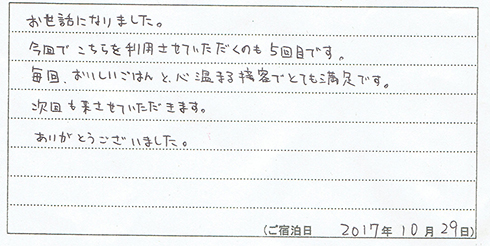 お世話になりました。
今回でこちらを利用させていただくのも5回目です。
毎回、おいしいごはんと、心温まる接客でとても満足です。
次回も来させていただきます。
ありがとうございました。
(ご宿泊日 2017年10月29日)